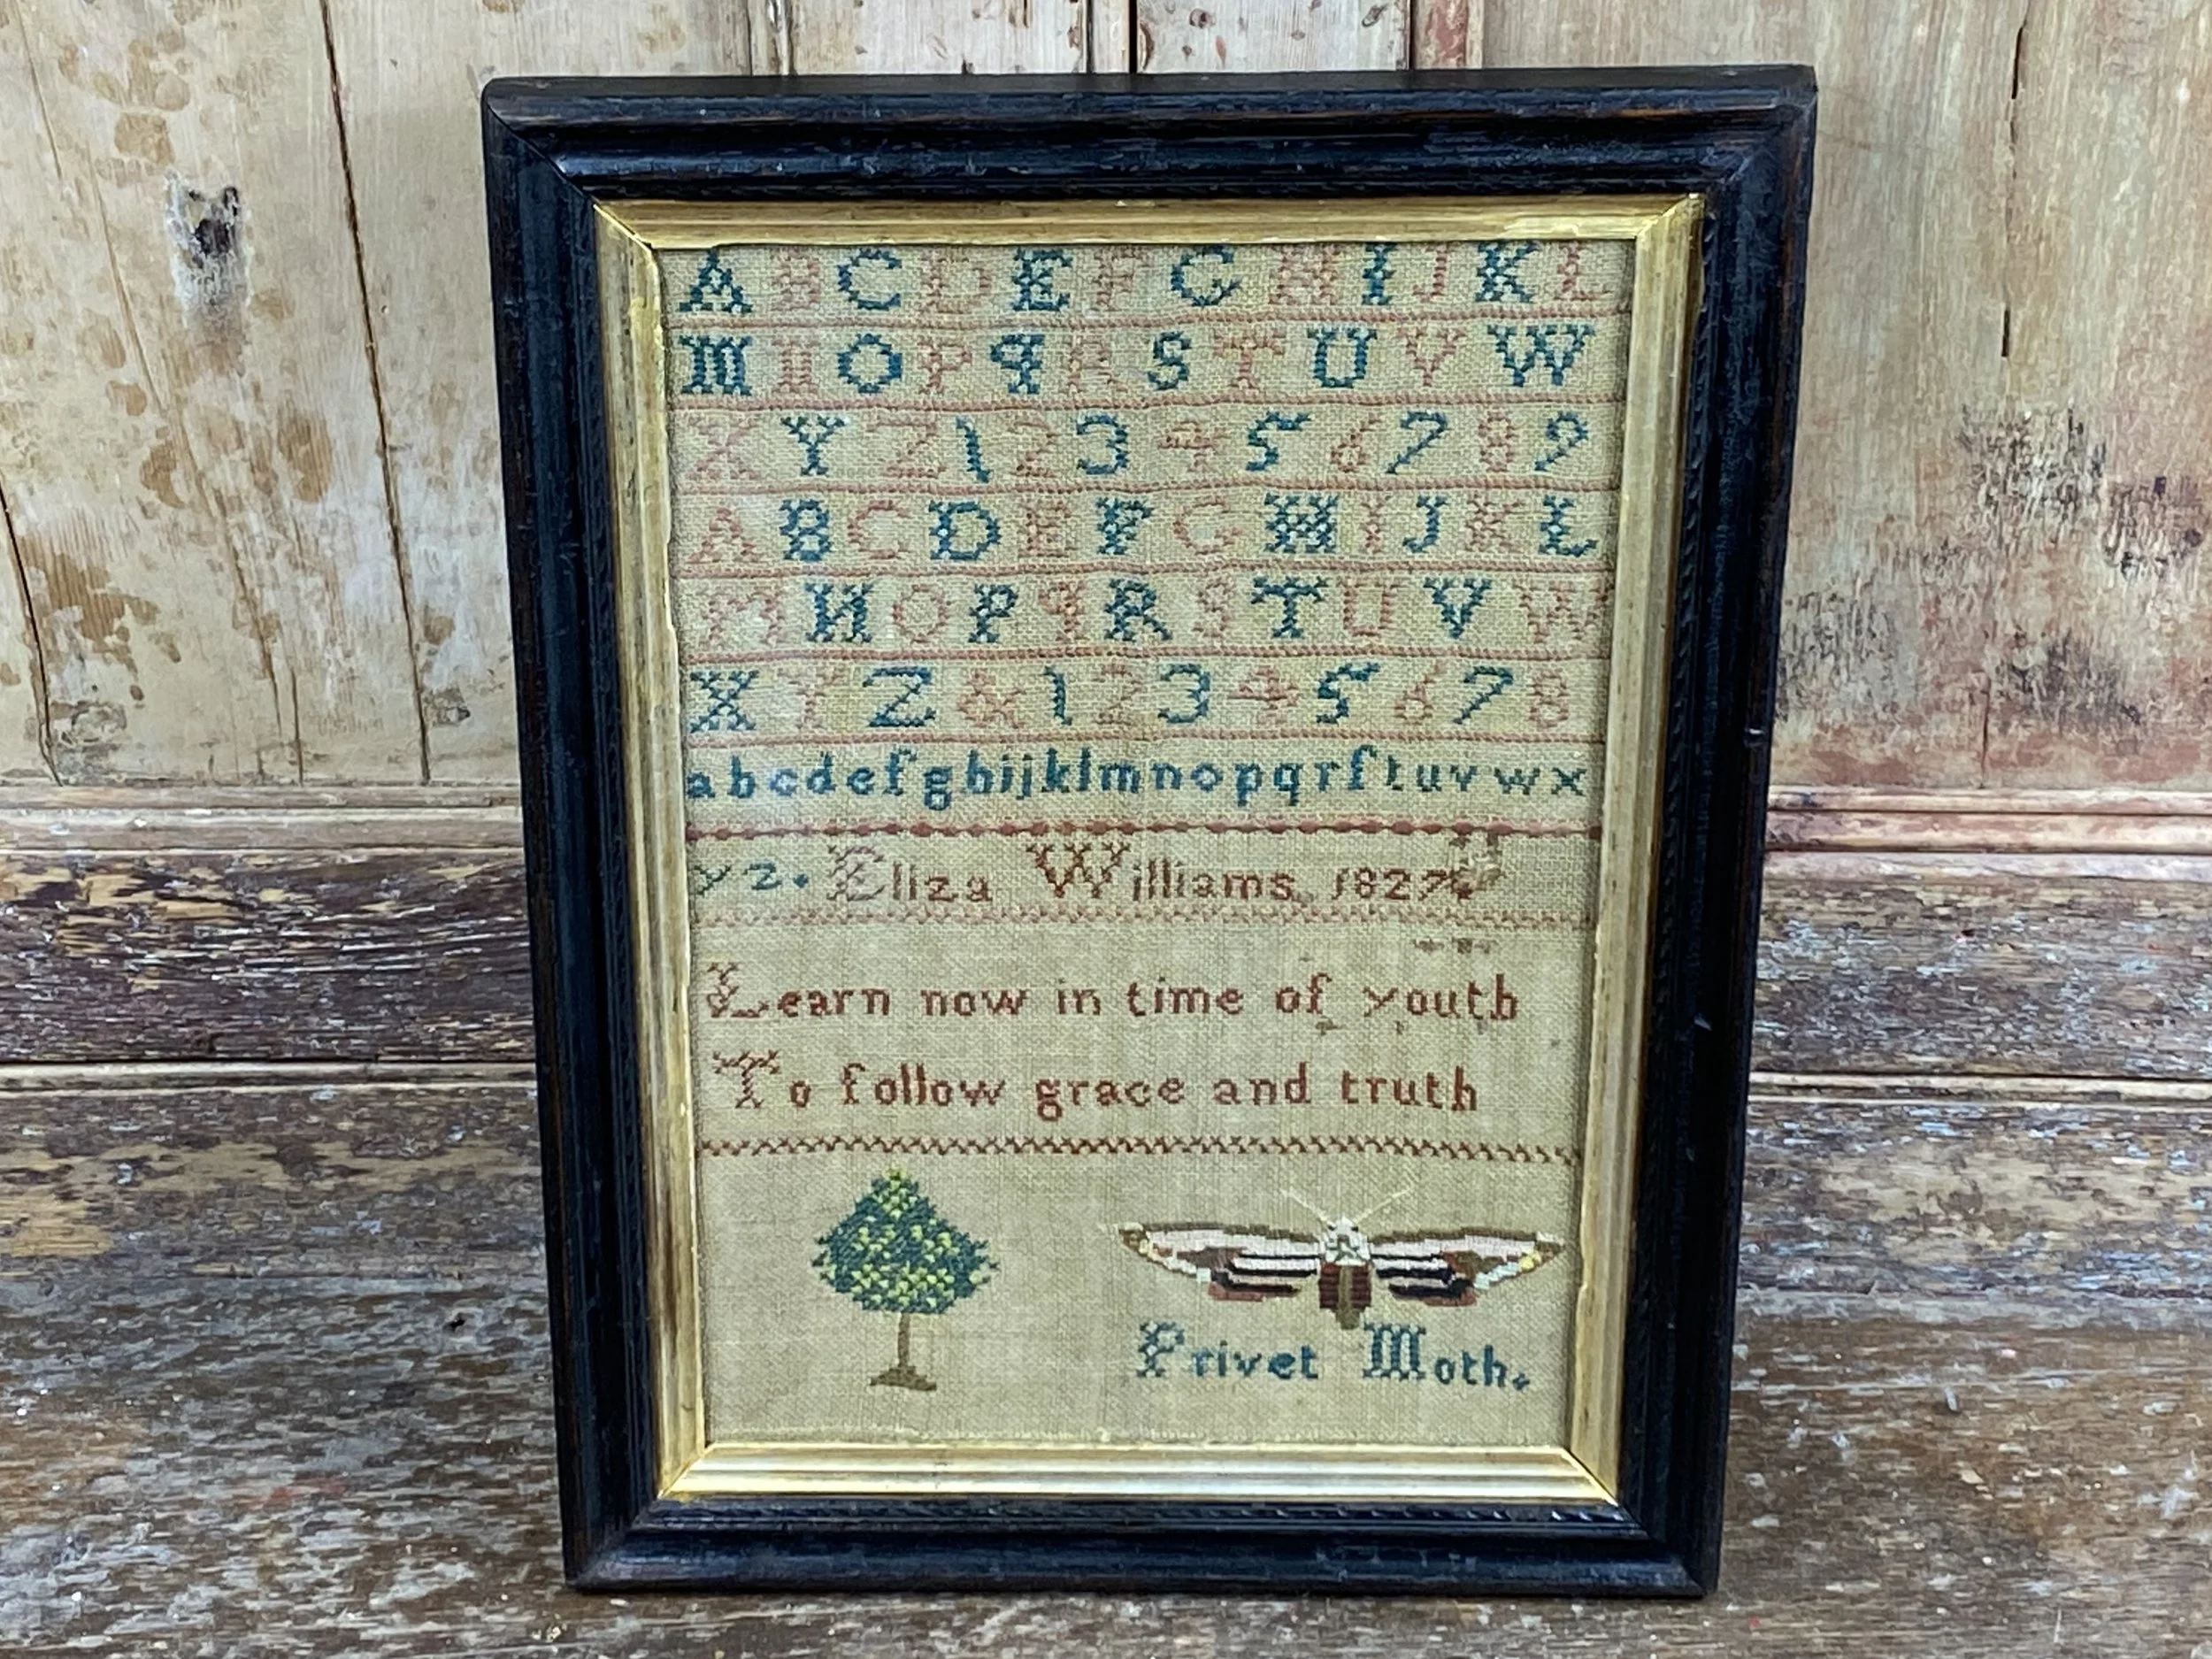 A B C D E F G H I J K L
M N O P q R S T U V W
X Y Z 1 2 3 4 5 6 7 8 9
A B C D E F G H I J K L
M N O P q R S T U V W
X Y Z & 1 2 3 4 5 6 7 8
a b c d e f g h i j k l m n o p q r ſ t u v w x
y z. Eliza Williams 1827
Learn now in time of youth
To follow grace and truth
Privet Moth.